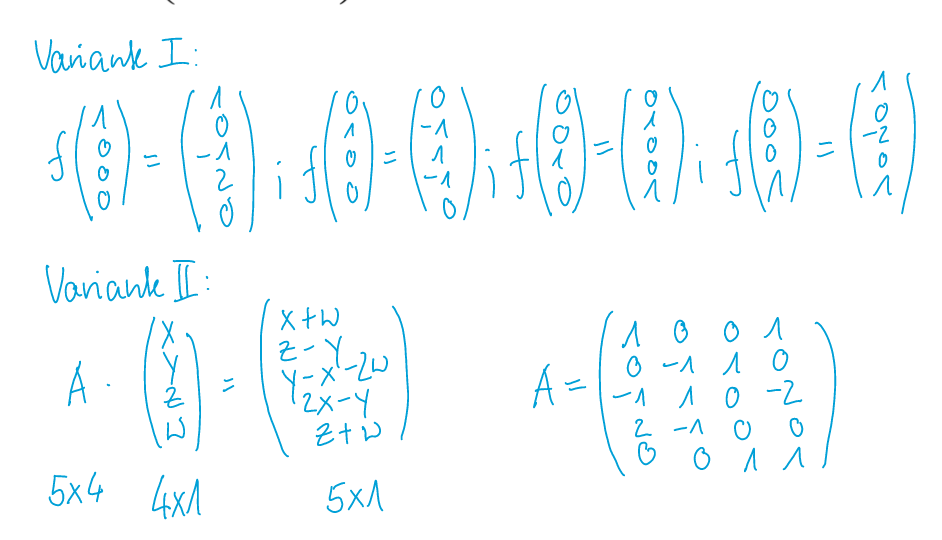 Variante I:
f(1 0 0 0) = (1 0 -1 2 0) ; f(0 1 0 0) = (0 -1 1 -1 0) ; f(0 0 1 0) = (0 1 0 0 1) ; f(0 0 0 1) = (1 0 -2 0 1)
Variante II:
A · (x y z w) = (x+w z-y y-x-2w 2x-y z+w)
A = (1 0 0 1
0 -1 1 0
-1 1 0 -2
2 -1 0 0
0 0 1 1)
5x4 4x1 5x1